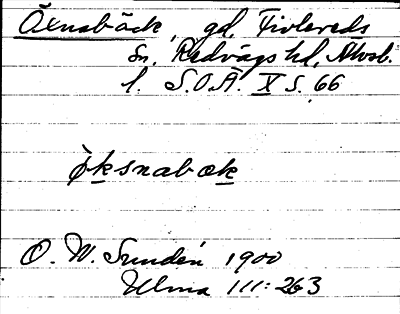 Öxnabäck, gd, Tivlereds
Sn, Redvägs hd, Älvsb.
l. S.O.Ä. X S. 66
øksnabæk
O. W. Sundén 1900
Ulma 111: 263